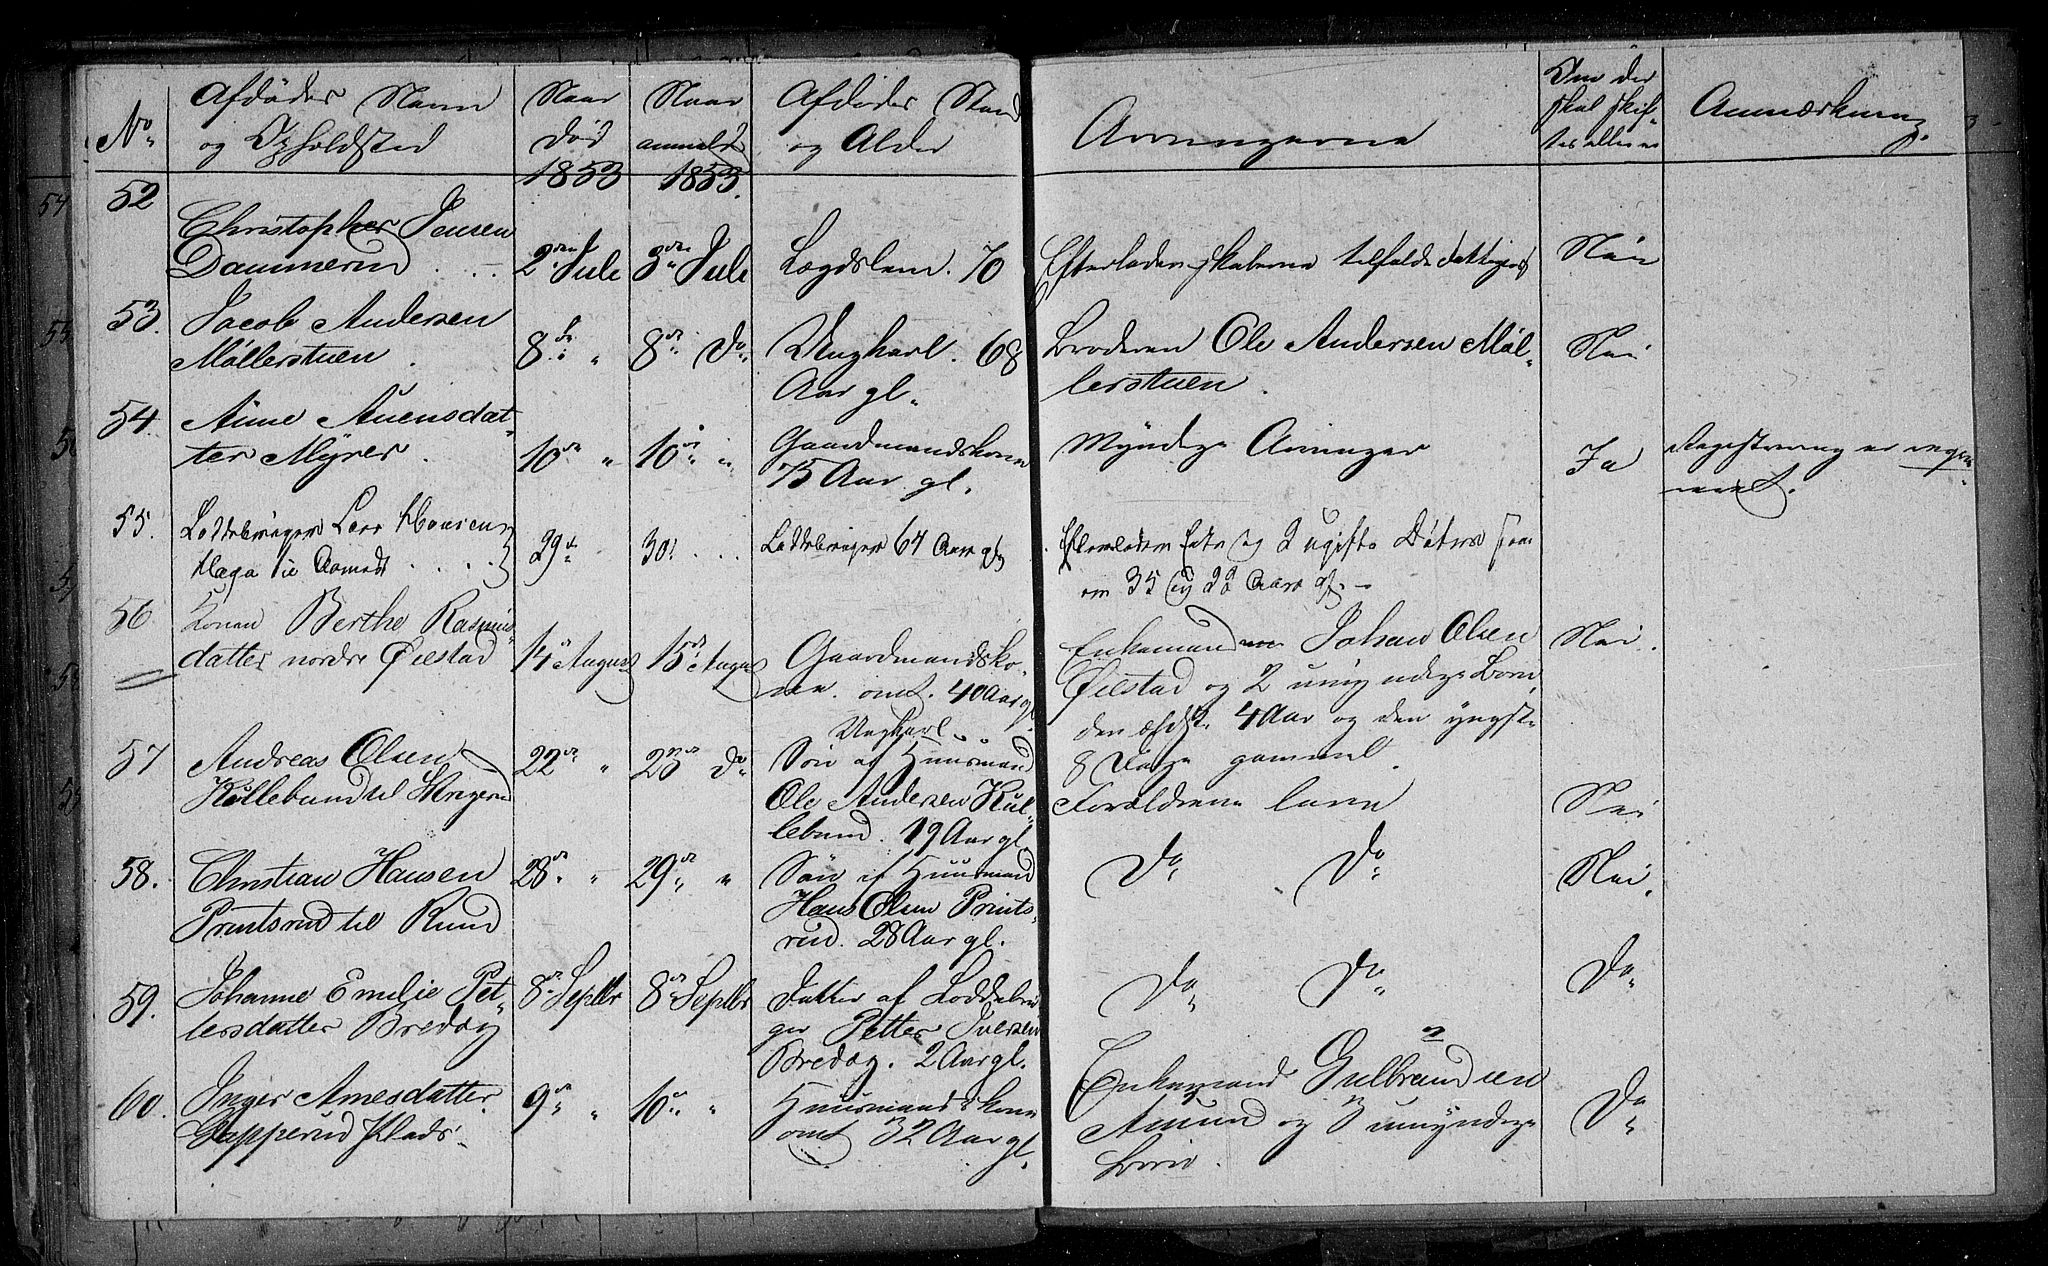 No
Afdødes Navn
og Opholdsted
Naar
død
1853
Naar
anmeldt
1853.
Afdødes Stand
og Alder
Arvingerne
Om der
skal skif-
tes eller ei
Anmærkning
52
Christopher Jensen
Dammerud
2den Juli
3die Juli
Lægdslem. 70
Efterladenskaberne tilfaldt
Nei
53.
Jacob Andersen
Møllerstuen
8de "
8de Do
Ungkarl. 68
Aar gl.
Broderen Ole Andersen Møl-
lerstuen.
Nei
54.
Anne Auensdat-
ter Myrer
10de "
10de "
Gaardmandskone
75 Aar gl.
Myndige Arvinger
Ja
Registrering er
55.
Loddebruger Lars Hansen
Haga
29de
30.
Loddebruger 64 Aar gl.
Efterladen Enke og 2 ugifte Døtre
35 og 22 Aar gl. -
56
Konen Berthe Rasmus-
datter nordre Øilstad
14de August
15de August
Gaardmandsko-
nen. omt. 40 Aar gl.
Enkemanden Johan Olsen
Øilstad og 2 umyndige Børn,
den ældste 4 Aar og den yngste
8 Dage gammel.
Nei.
57
Andreas Olsen
Kullebund til
22de "
23de Do
Ungkarl..
Søn af Huusmand
Ole Andersen Kul-
lebund. 19 Aar gl.
Forældrene leve
Nei
58.
Christian Hansen
Printsrud til Ruud
28de "
29de "
Søn af Huusmand
Hans Olsen Prints-
rud. 28 Aar gl.
Do Do
Nei.
59.
Johanne Emilie Pet-
tersdatter Bredøy
8de Septbr
8de Septbr
Datter af Loddebru-
ger Petter Iversen
Bredøy. 2 Aar gl.
Do Do
Do
60.
Inger Arnesdatter
9de "
10de "
Huusmandskone
omt 32 Aar gl.
Enkemand Gulbrand
og 3 umyndige
Børn.
Do